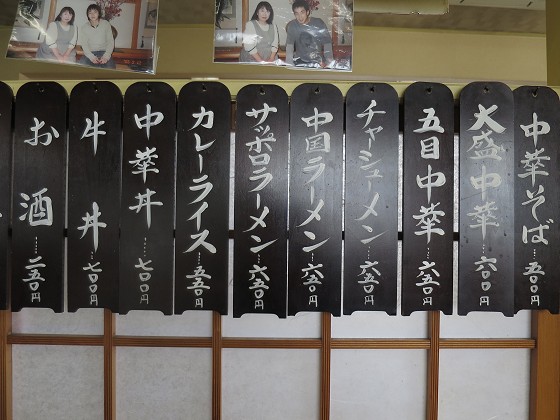 中華そば…五〇〇円
大盛中華…六〇〇円
五目中華…六五〇円
チャーシューメン…六五〇円
中国ラーメン…六五〇円
サッポロラーメン…六五〇円
カレーライス…五五〇円
中華丼……七〇〇円
牛丼……七〇〇円
お酒……二五〇円